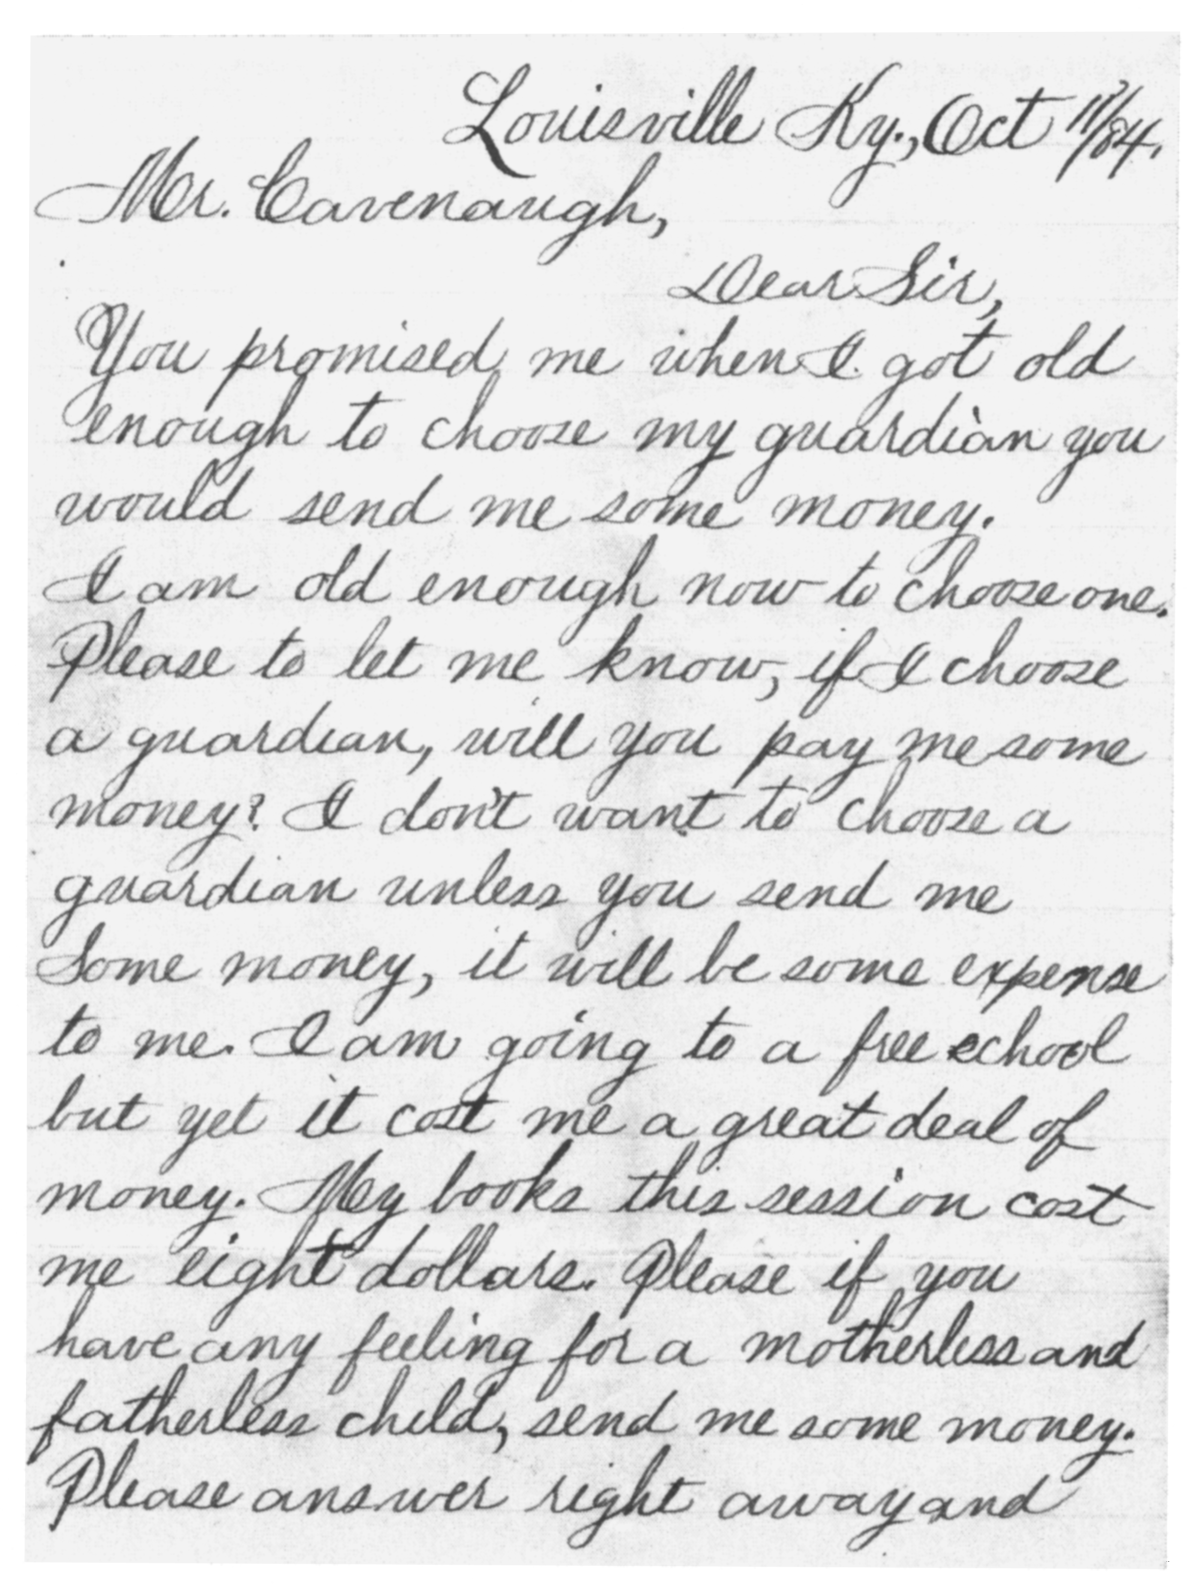 Louisville Ky., Oct 11/84.
Mr. Cavenaugh,
Dear Sir,
You promised me when I got old
enough to choose my guardian you
would send me some money.
I am old enough now to choose one.
Please to let me know, if I choose
a guardian, will you pay me some
money? I don't want to choose a
guardian unless you send me
Some money, it will be some expense
to me. I am going to a free school
but yet it cost me a great deal of
money. My books this session cost
me eight dollars. Please if you
have any feeling for a motherless and
fatherless child, send me some money.
Please answer right away and